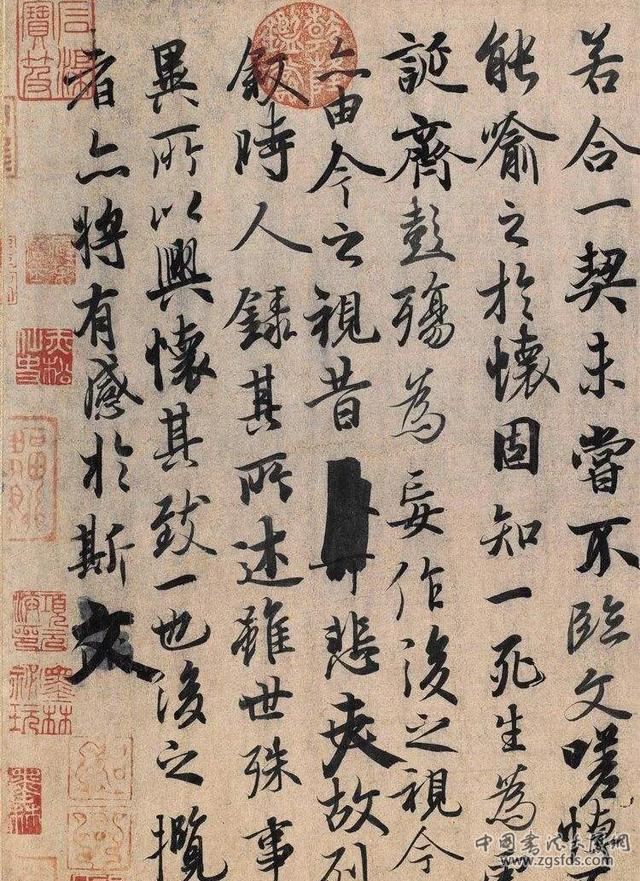 若合一契未嘗不臨文嗟悼不
能喻之於懷固知一死生為
誕齊彭殤為妄作後之視今
亦由今之視昔悲夫故列
敘時人錄其所述雖世殊事
異所以興懷其致一也後之攬
者亦將有感於斯文
項元汴印
墨林祕玩
www.zgsfds.com